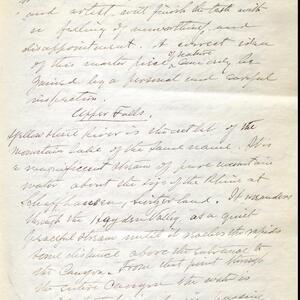 and artist, will finish the task with
a feeling of unworthiness and
disappointment. A correct idea
of this master piece of nature can only be
gained by a personal and careful
inspiration.
Upper Falls.
Yellowstone river is the outlet of the
mountain lake of the same name. It is
a magnificent stream of pure mountain
water about the size of the Rhine at
Schaffhausen, Switzerland. It meanders
through the Hayden Valley as a quiet
graceful stream until it reaches the rapids
some distance above the entrance to
the Canyon. From that point through
the entire Canyon the water is